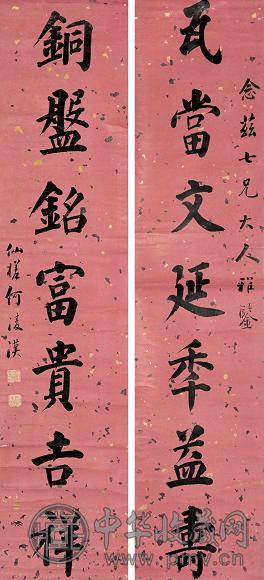 念兹七兄大人雅鉴
瓦當文延年益壽
銅盤銘富貴吉祥
仙槎何凌漢
中华收藏网
pmv.cn